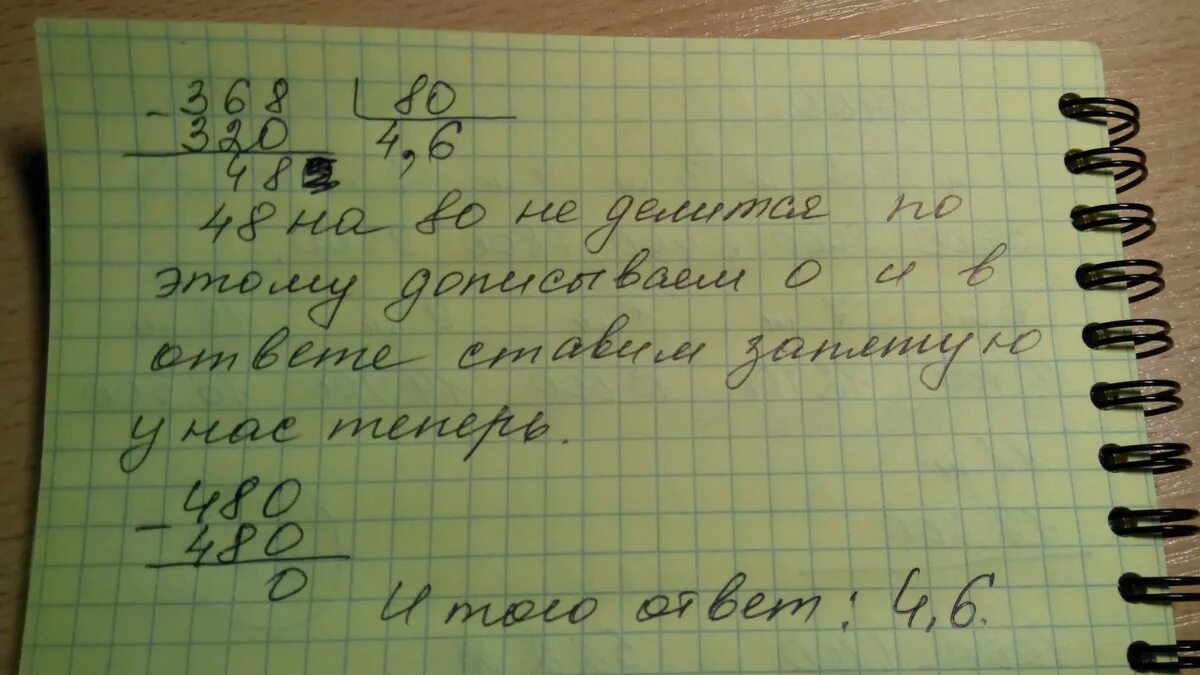 - 368 | 80
320 4,6
48
48 на 80 не делится по
этому дописываем 0 и в
ответе ставим запятую
у нас теперь.
- 480
480
0
И того ответ: 4,6.